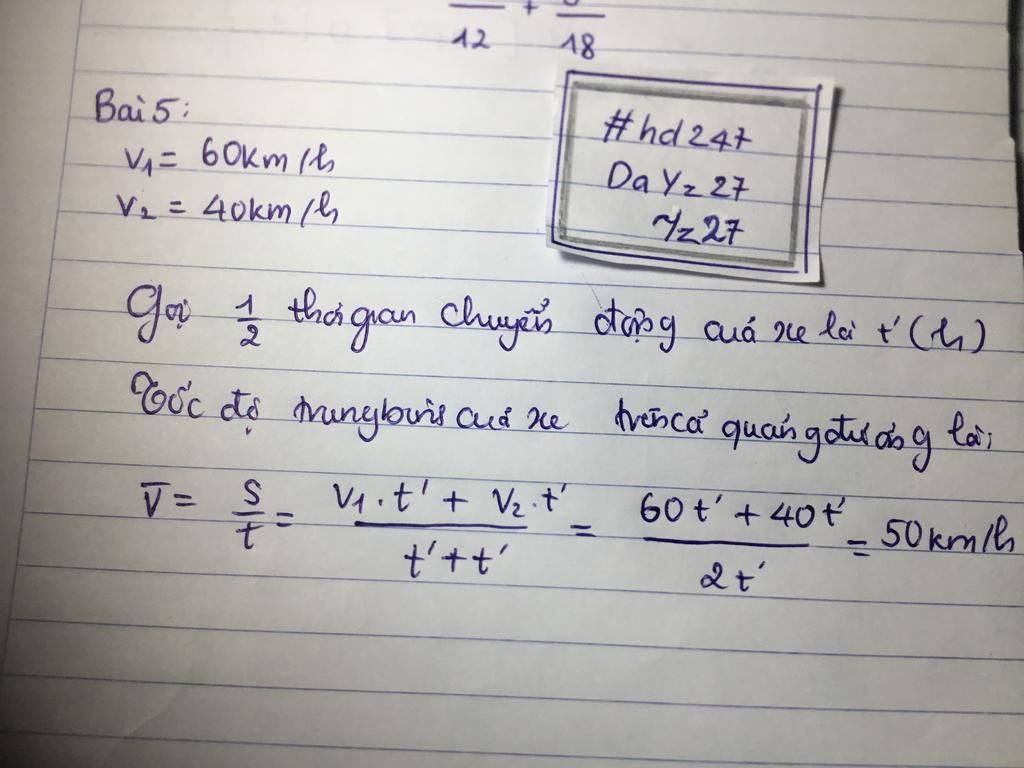 12 + 18
Bài 5:
V₁ = 60km/h
V₂ = 40km/h
#hd247
DaYz27
Yz27
Gọi 1/2 thời gian chuyển động của xe là t' (h)
Tốc độ trung bình của xe trên cả quãng đường là:
V̅ = S/t = (V₁.t' + V₂.t')/(t' + t') = (60t' + 40t')/(2t') = 50km/h